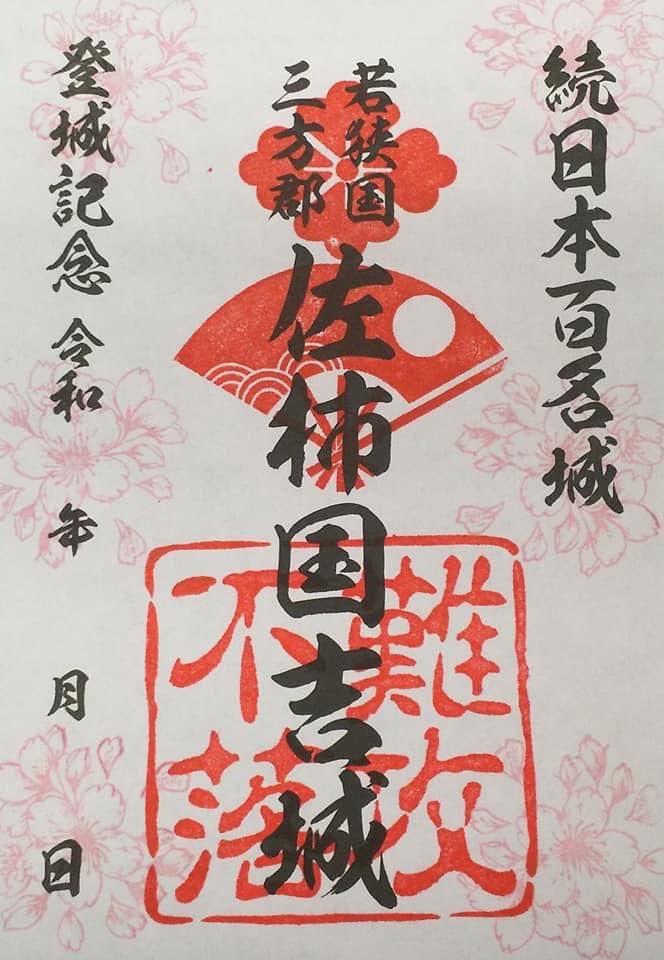 続日本百名城
若狭国
三方郡
佐柿国吉城
難攻
不落
登城記念 令和 年 月 日